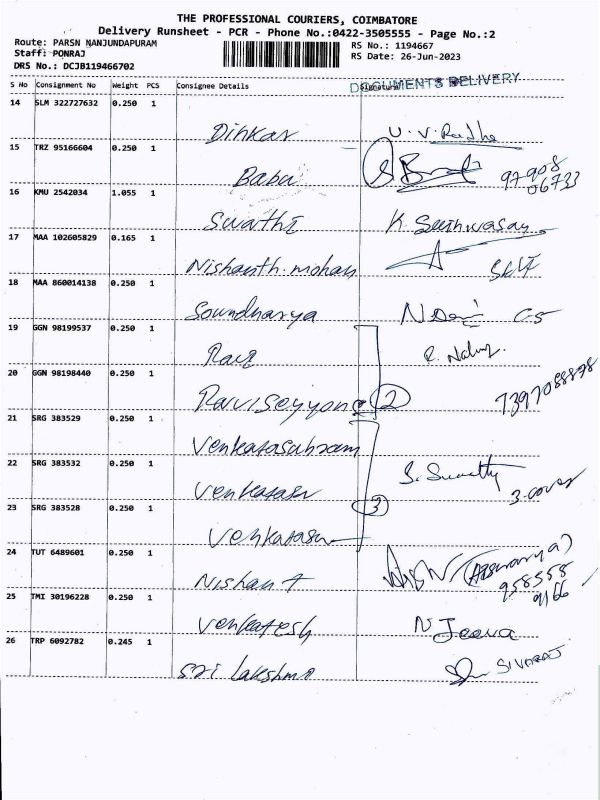 THE PROFESSIONAL COURIERS, COIMBATORE
Delivery Runsheet - PCR - Phone No.:0422-3505555 - Page No.:2
Route: PARSN NANJUNDAPURAM
RS No.: 1194667
Staff: PONRAJ
RS Date: 26-Jun-2023
DRS No.: DCJB119466702
DOCUMENTS DELIVERY
S No Consignment No Weight PCS Consignee Details Signature
14 SLM 322727632 0.250 1
Dinkar U.V. Radha
15 TRZ 95166604 0.250 1
Babu 97908
06733
16 KMU 2542034 1.055 1
Swathi K.
17 MAA 102605829 0.165 1
Nishanth. mohan Self
18 MAA 860014138 0.250 1
Soundharya CS
19 GGN 98199537 0.250 1
Ravi R.
20 GGN 98198440 0.250 1
2 7397088898
21 SRG 383529 0.250 1
22 SRG 383532 0.250 1
S. 3-cover
23 SRG 383528 0.250 1
3
24 TUT 6489601 0.250 1
Nishant (Aiswarya)
958558
9166
25 TMI 30196228 0.250 1
Venkatesh N Jeeva
26 TRP 6092782 0.245 1
Sri Lakshmi SIVARAJ